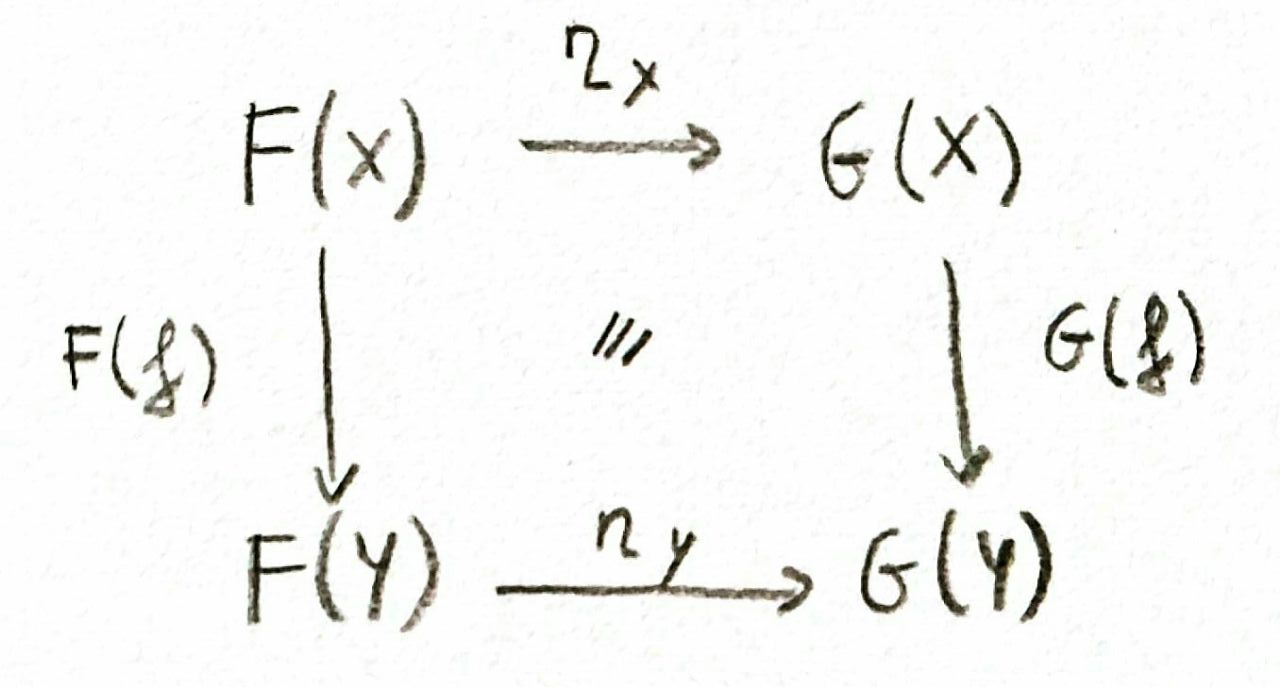 η_x
F(X) → G(X)
F(f) /// G(f)
η_y
F(Y) → G(Y)